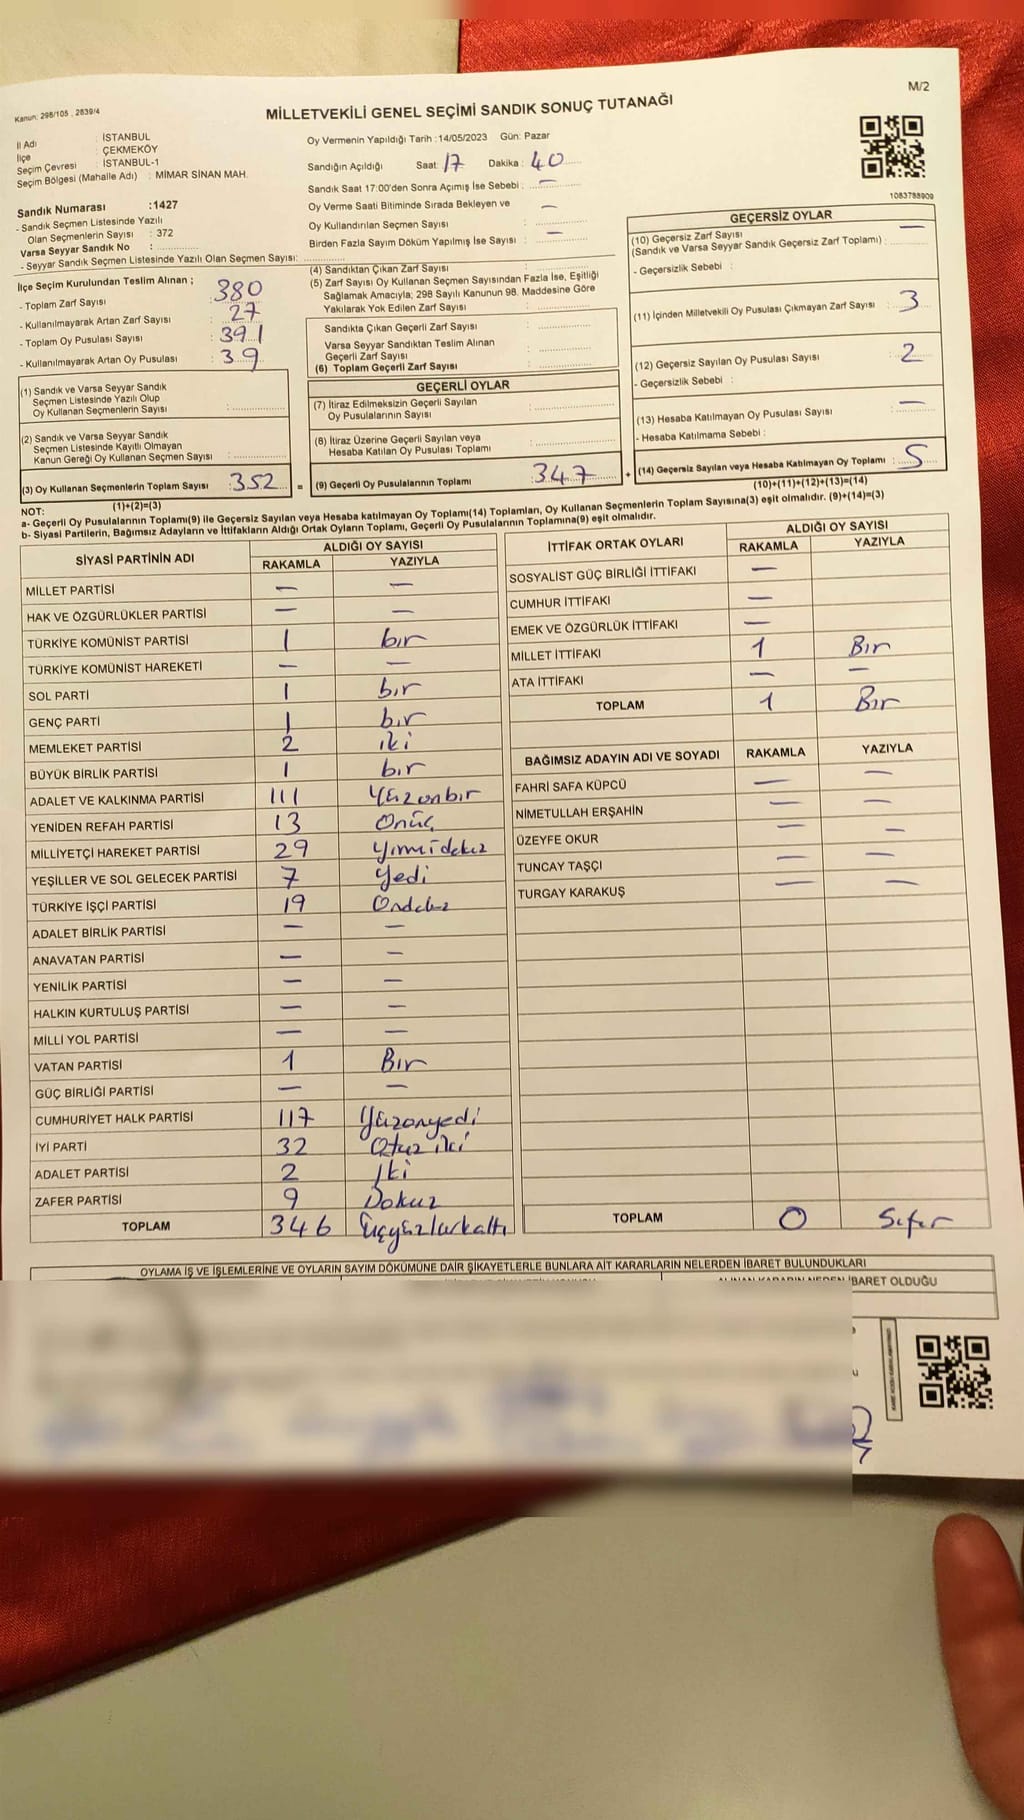 M/2
Kanun: 298/105 , 2839/4
MİLLETVEKİLİ GENEL SEÇİMİ SANDIK SONUÇ TUTANAĞI
İl Adı : İSTANBUL
İlçe : ÇEKMEKÖY
Seçim Çevresi : İSTANBUL-1
Seçim Bölgesi (Mahalle Adı) : MİMAR SİNAN MAH.
Oy Vermenin Yapıldığı Tarih :14/05/2023 Gün: Pazar
Sandığın Açıldığı Saat: 17 Dakika : 40
Sandık Saat 17:00'den Sonra Açımış İse Sebebi : —
Oy Verme Saati Bitiminde Sırada Bekleyen ve —
Oy Kullandırılan Seçmen Sayısı :
Birden Fazla Sayım Döküm Yapılmış İse Sayısı : —
1083788909
Sandık Numarası :1427
- Sandık Seçmen Listesinde Yazılı
Olan Seçmenlerin Sayısı : 372
Varsa Seyyar Sandık No :
- Seyyar Sandık Seçmen Listesinde Yazılı Olan Seçmen Sayısı:
İlçe Seçim Kurulundan Teslim Alınan ;
- Toplam Zarf Sayısı : 380
- Kullanılmayarak Artan Zarf Sayısı : 27
- Toplam Oy Pusulası Sayısı : 391
- Kullanılmayarak Artan Oy Pusulası : 39
(1) Sandık ve Varsa Seyyar Sandık
Seçmen Listesinde Yazılı Olup
Oy Kullanan Seçmenlerin Sayısı :
(2) Sandık ve Varsa Seyyar Sandık
Seçmen Listesinde Kayıtlı Olmayan
Kanun Gereği Oy Kullanan Seçmen Sayısı :
(3) Oy Kullanan Seçmenlerin Toplam Sayısı : 352
(1)+(2)=(3)
(4) Sandıktan Çıkan Zarf Sayısı :
(5) Zarf Sayısı Oy Kullanan Seçmen Sayısından Fazla İse, Eşitliği
Sağlamak Amacıyla; 298 Sayılı Kanunun 98. Maddesine Göre
Yakılarak Yok Edilen Zarf Sayısı :
Sandıkta Çıkan Geçerli Zarf Sayısı :
Varsa Seyyar Sandıktan Teslim Alınan
Geçerli Zarf Sayısı :
(6) Toplam Geçerli Zarf Sayısı :
GEÇERLİ OYLAR
(7) İtiraz Edilmeksizin Geçerli Sayılan
Oy Pusulalarının Sayısı :
(8) İtiraz Üzerine Geçerli Sayılan veya
Hesaba Katılan Oy Pusulası Toplamı :
= (9) Geçerli Oy Pusulalarının Toplamı : 347
GEÇERSİZ OYLAR
(10) Geçersiz Zarf Sayısı —
(Sandık ve Varsa Seyyar Sandık Geçersiz Zarf Toplamı) :
- Geçersizlik Sebebi :
(11) İçinden Milletvekili Oy Pusulası Çıkmayan Zarf Sayısı : 3
(12) Geçersiz Sayılan Oy Pusulası Sayısı : 2
- Geçersizlik Sebebi :
(13) Hesaba Katılmayan Oy Pusulası Sayısı : —
- Hesaba Katılmama Sebebi :
+ (14) Geçersiz Sayılan veya Hesaba Katılmayan Oy Toplamı : 5
(10)+(11)+(12)+(13)=(14)
NOT:
a- Geçerli Oy Pusulalarının Toplamı(9) ile Geçersiz Sayılan veya Hesaba katılmayan Oy Toplamı(14) Toplamları, Oy Kullanan Seçmenlerin Toplam Sayısına(3) eşit olmalıdır. (9)+(14)=(3)
b- Siyasi Partilerin, Bağımsız Adayların ve İttifakların Aldığı Ortak Oyların Toplamı, Geçerli Oy Pusulalarının Toplamına(9) eşit olmalıdır.
SİYASİ PARTİNİN ADI ALDIĞI OY SAYISI
RAKAMLA YAZIYLA
MİLLET PARTİSİ — —
HAK VE ÖZGÜRLÜKLER PARTİSİ — —
TÜRKİYE KOMÜNİST PARTİSİ 1 bir
TÜRKİYE KOMÜNİST HAREKETİ — —
SOL PARTİ 1 bir
GENÇ PARTİ 1 bir
MEMLEKET PARTİSİ 2 iki
BÜYÜK BİRLİK PARTİSİ 1 bir
ADALET VE KALKINMA PARTİSİ 111 Yüzonbir
YENİDEN REFAH PARTİSİ 13 Onüç
MİLLİYETÇİ HAREKET PARTİSİ 29 Yirmidokuz
YEŞİLLER VE SOL GELECEK PARTİSİ 7 Yedi
TÜRKİYE İŞÇİ PARTİSİ 19 Ondokuz
ADALET BİRLİK PARTİSİ — —
ANAVATAN PARTİSİ — —
YENİLİK PARTİSİ — —
HALKIN KURTULUŞ PARTİSİ — —
MİLLİ YOL PARTİSİ — —
VATAN PARTİSİ 1 Bir
GÜÇ BİRLİĞİ PARTİSİ — —
CUMHURİYET HALK PARTİSİ 117 Yüzonyedi
İYİ PARTİ 32 Otuz iki
ADALET PARTİSİ 2 İki
ZAFER PARTİSİ 9 Dokuz
TOPLAM 346 Üçyüzkırkaltı
İTTİFAK ORTAK OYLARI ALDIĞI OY SAYISI
RAKAMLA YAZIYLA
SOSYALİST GÜÇ BİRLİĞİ İTTİFAKI —
CUMHUR İTTİFAKI —
EMEK VE ÖZGÜRLÜK İTTİFAKI —
MİLLET İTTİFAKI 1 Bir
ATA İTTİFAKI — —
TOPLAM 1 Bir
BAĞIMSIZ ADAYIN ADI VE SOYADI RAKAMLA YAZIYLA
FAHRİ SAFA KÜPCÜ — —
NİMETULLAH ERŞAHİN — —
ÜZEYFE OKUR — —
TUNCAY TAŞÇI — —
TURGAY KARAKUŞ — —
TOPLAM 0 Sıfır
OYLAMA İŞ VE İŞLEMLERİNE VE OYLARIN SAYIM DÖKÜMÜNE DAİR ŞİKAYETLERLE BUNLARA AİT KARARLARIN NELERDEN İBARET BULUNDUKLARI
ALINAN KARARIN NEDEN İBARET OLDUĞU